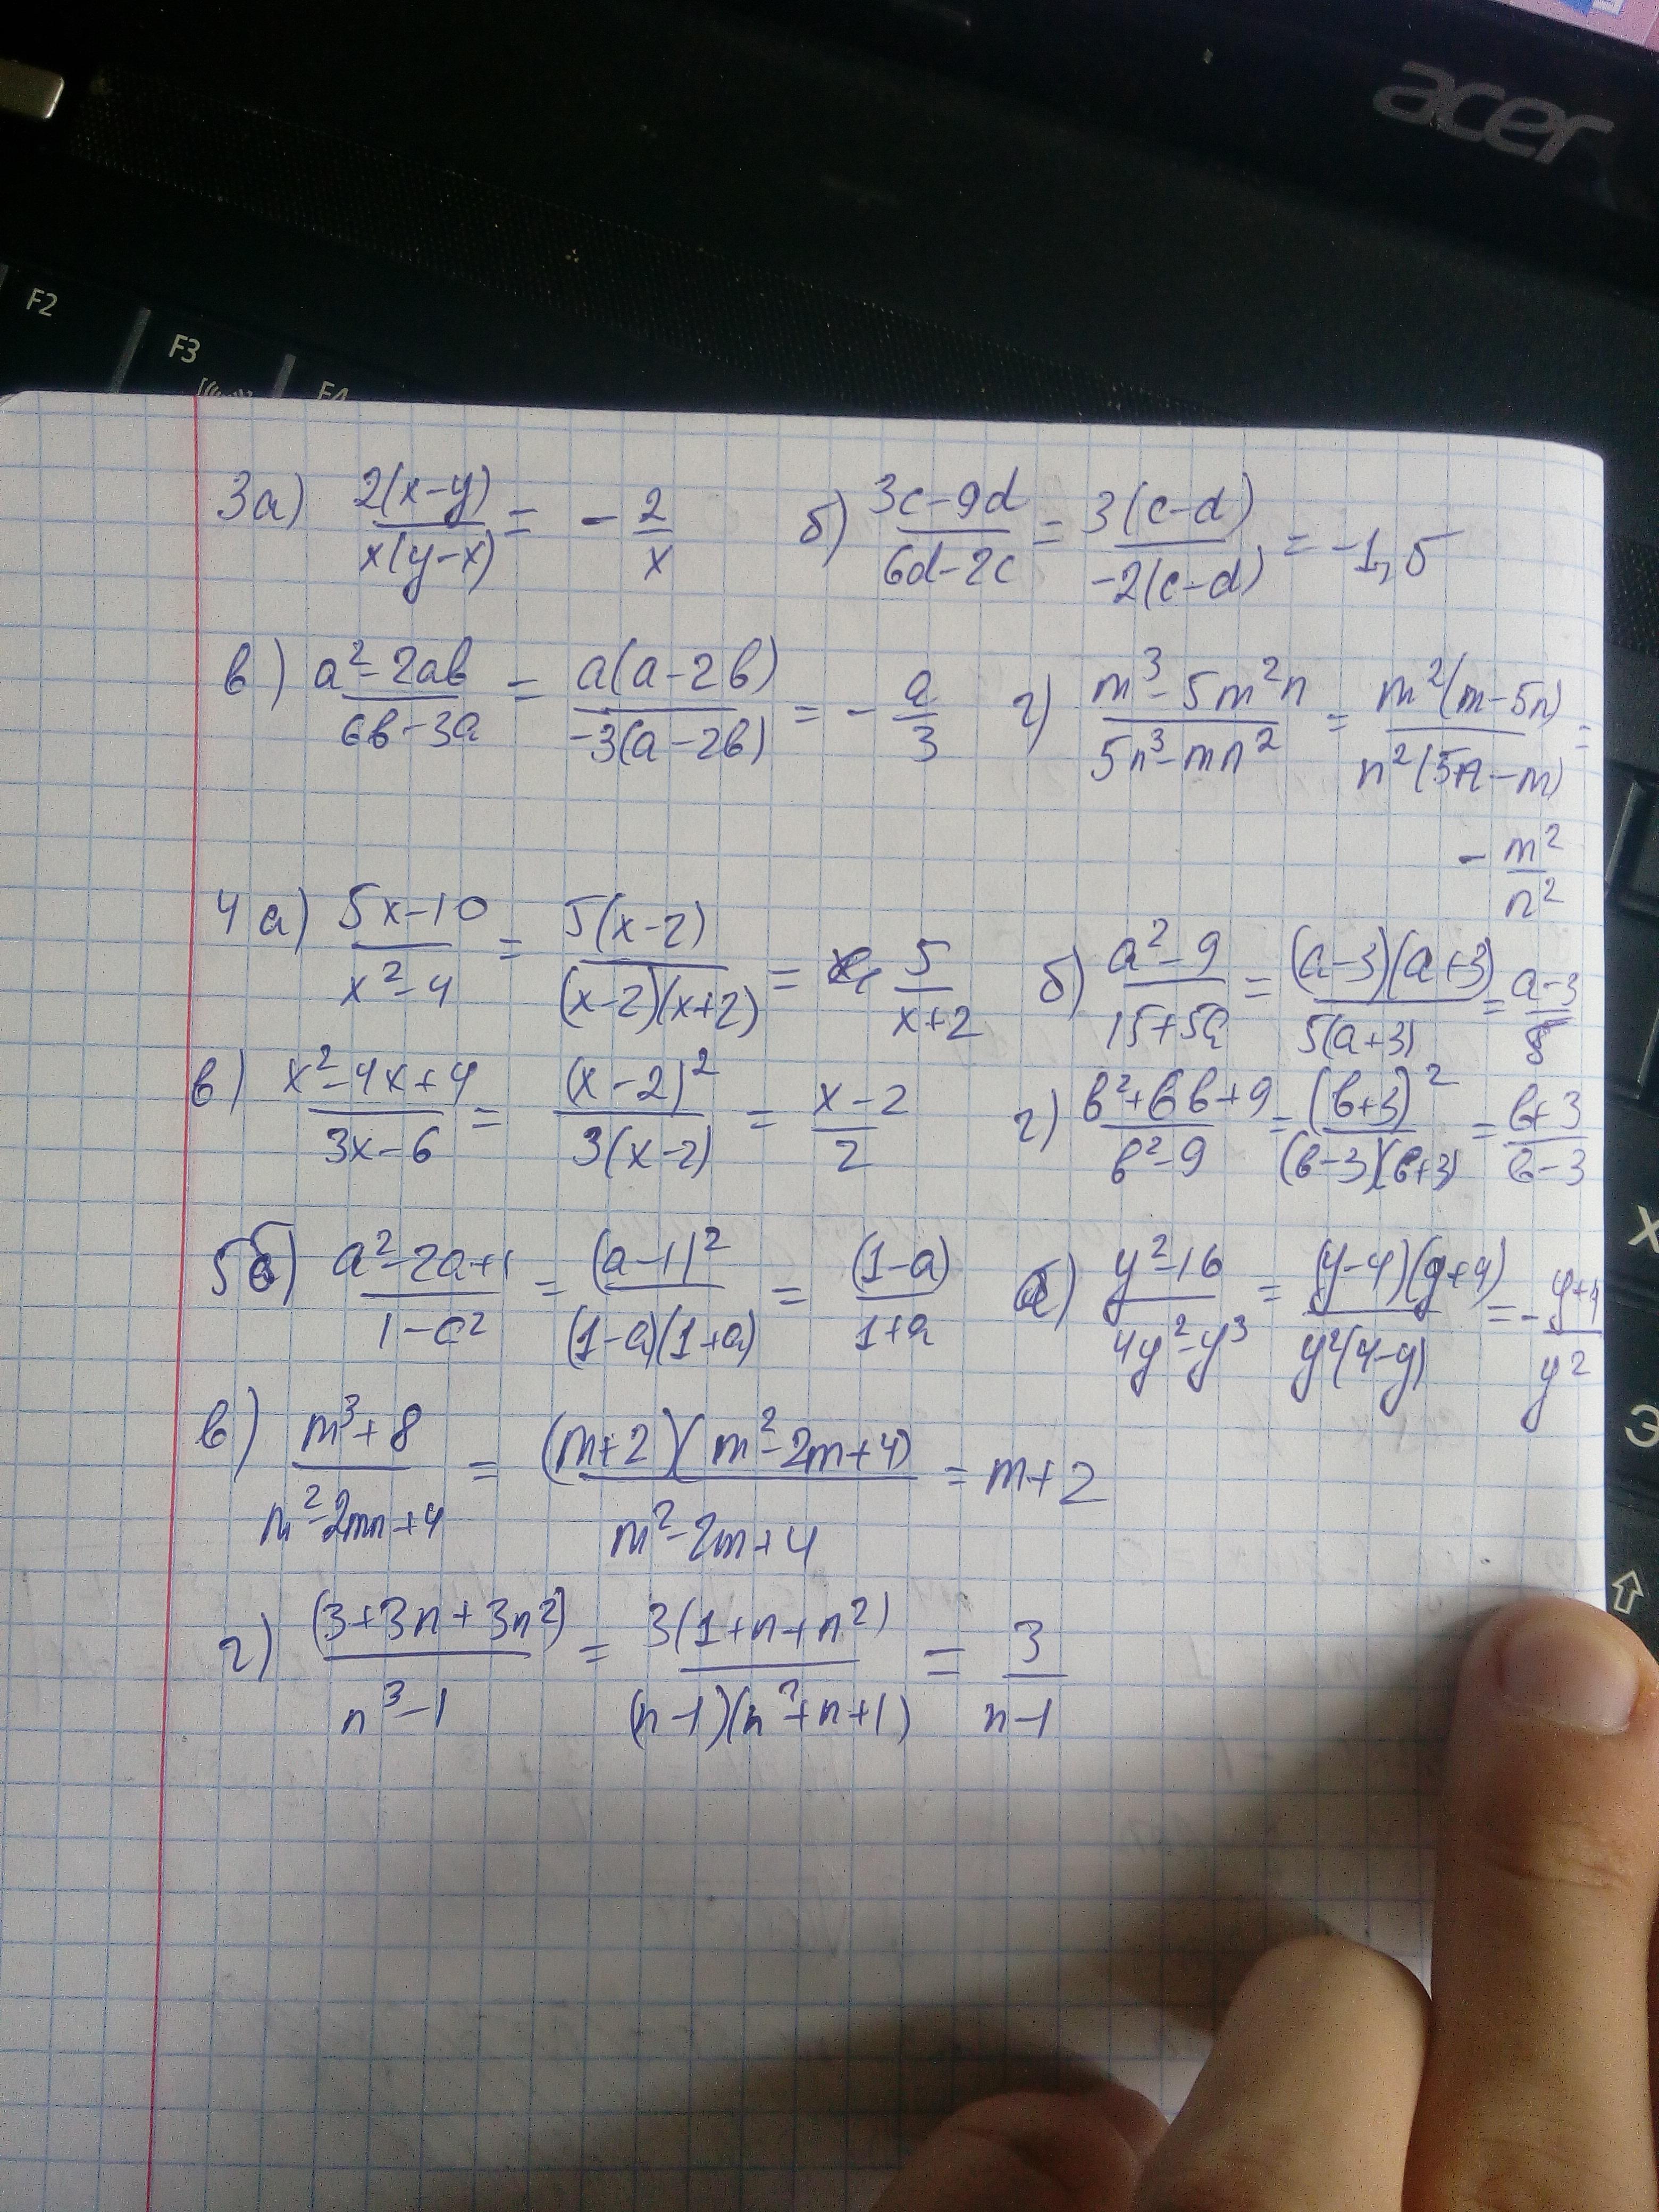 acer
F2
F3
F4
3а) 2(x-y)/x(y-x) = - 2/x б) 3c-9d/6d-2c = 3(c-d)/-2(c-d) = -1,5
в) a²-2ab/6b-3a = a(a-2b)/-3(a-2b) = - a/3 г) m³-5m²n/5n³-mn² = m²(m-5n)/n²(5n-m) =
- m²/n²
4а) 5x-10/x²-4 = 5(x-2)/(x-2)(x+2) = 5/x+2 б) a²-9/15+5a = (a-3)(a+3)/5(a+3) = a-3/5
в) x²-4x+4/3x-6 = (x-2)²/3(x-2) = x-2/2 г) b²+6b+9/b²-9 = (b+3)²/(b-3)(b+3) = b+3/b-3
5б) a²-2a+1/1-a² = (a-1)²/(1-a)(1+a) = (1-a)/1+a а) y²-16/4y²-y³ = (y-4)(y+4)/y²(4-y) = - y+4/y²
в) m³+8/m²-2m+4 = (m+2)(m²-2m+4)/m²-2m+4 = m+2
г) (3+3n+3n²)/n³-1 = 3(1+n+n²)/(n-1)(n²+n+1) = 3/n-1
Х
Э